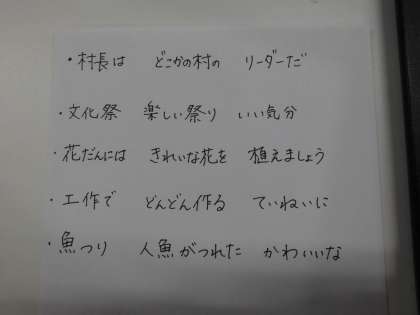 ・村長は どこかの村の リーダーだ
・文化祭 楽しい祭り いい気分
・花だんには きれいな花を 植えましょう
・工作で どんどん作る ていねいに
・魚つり 人魚がつれた かわいいな